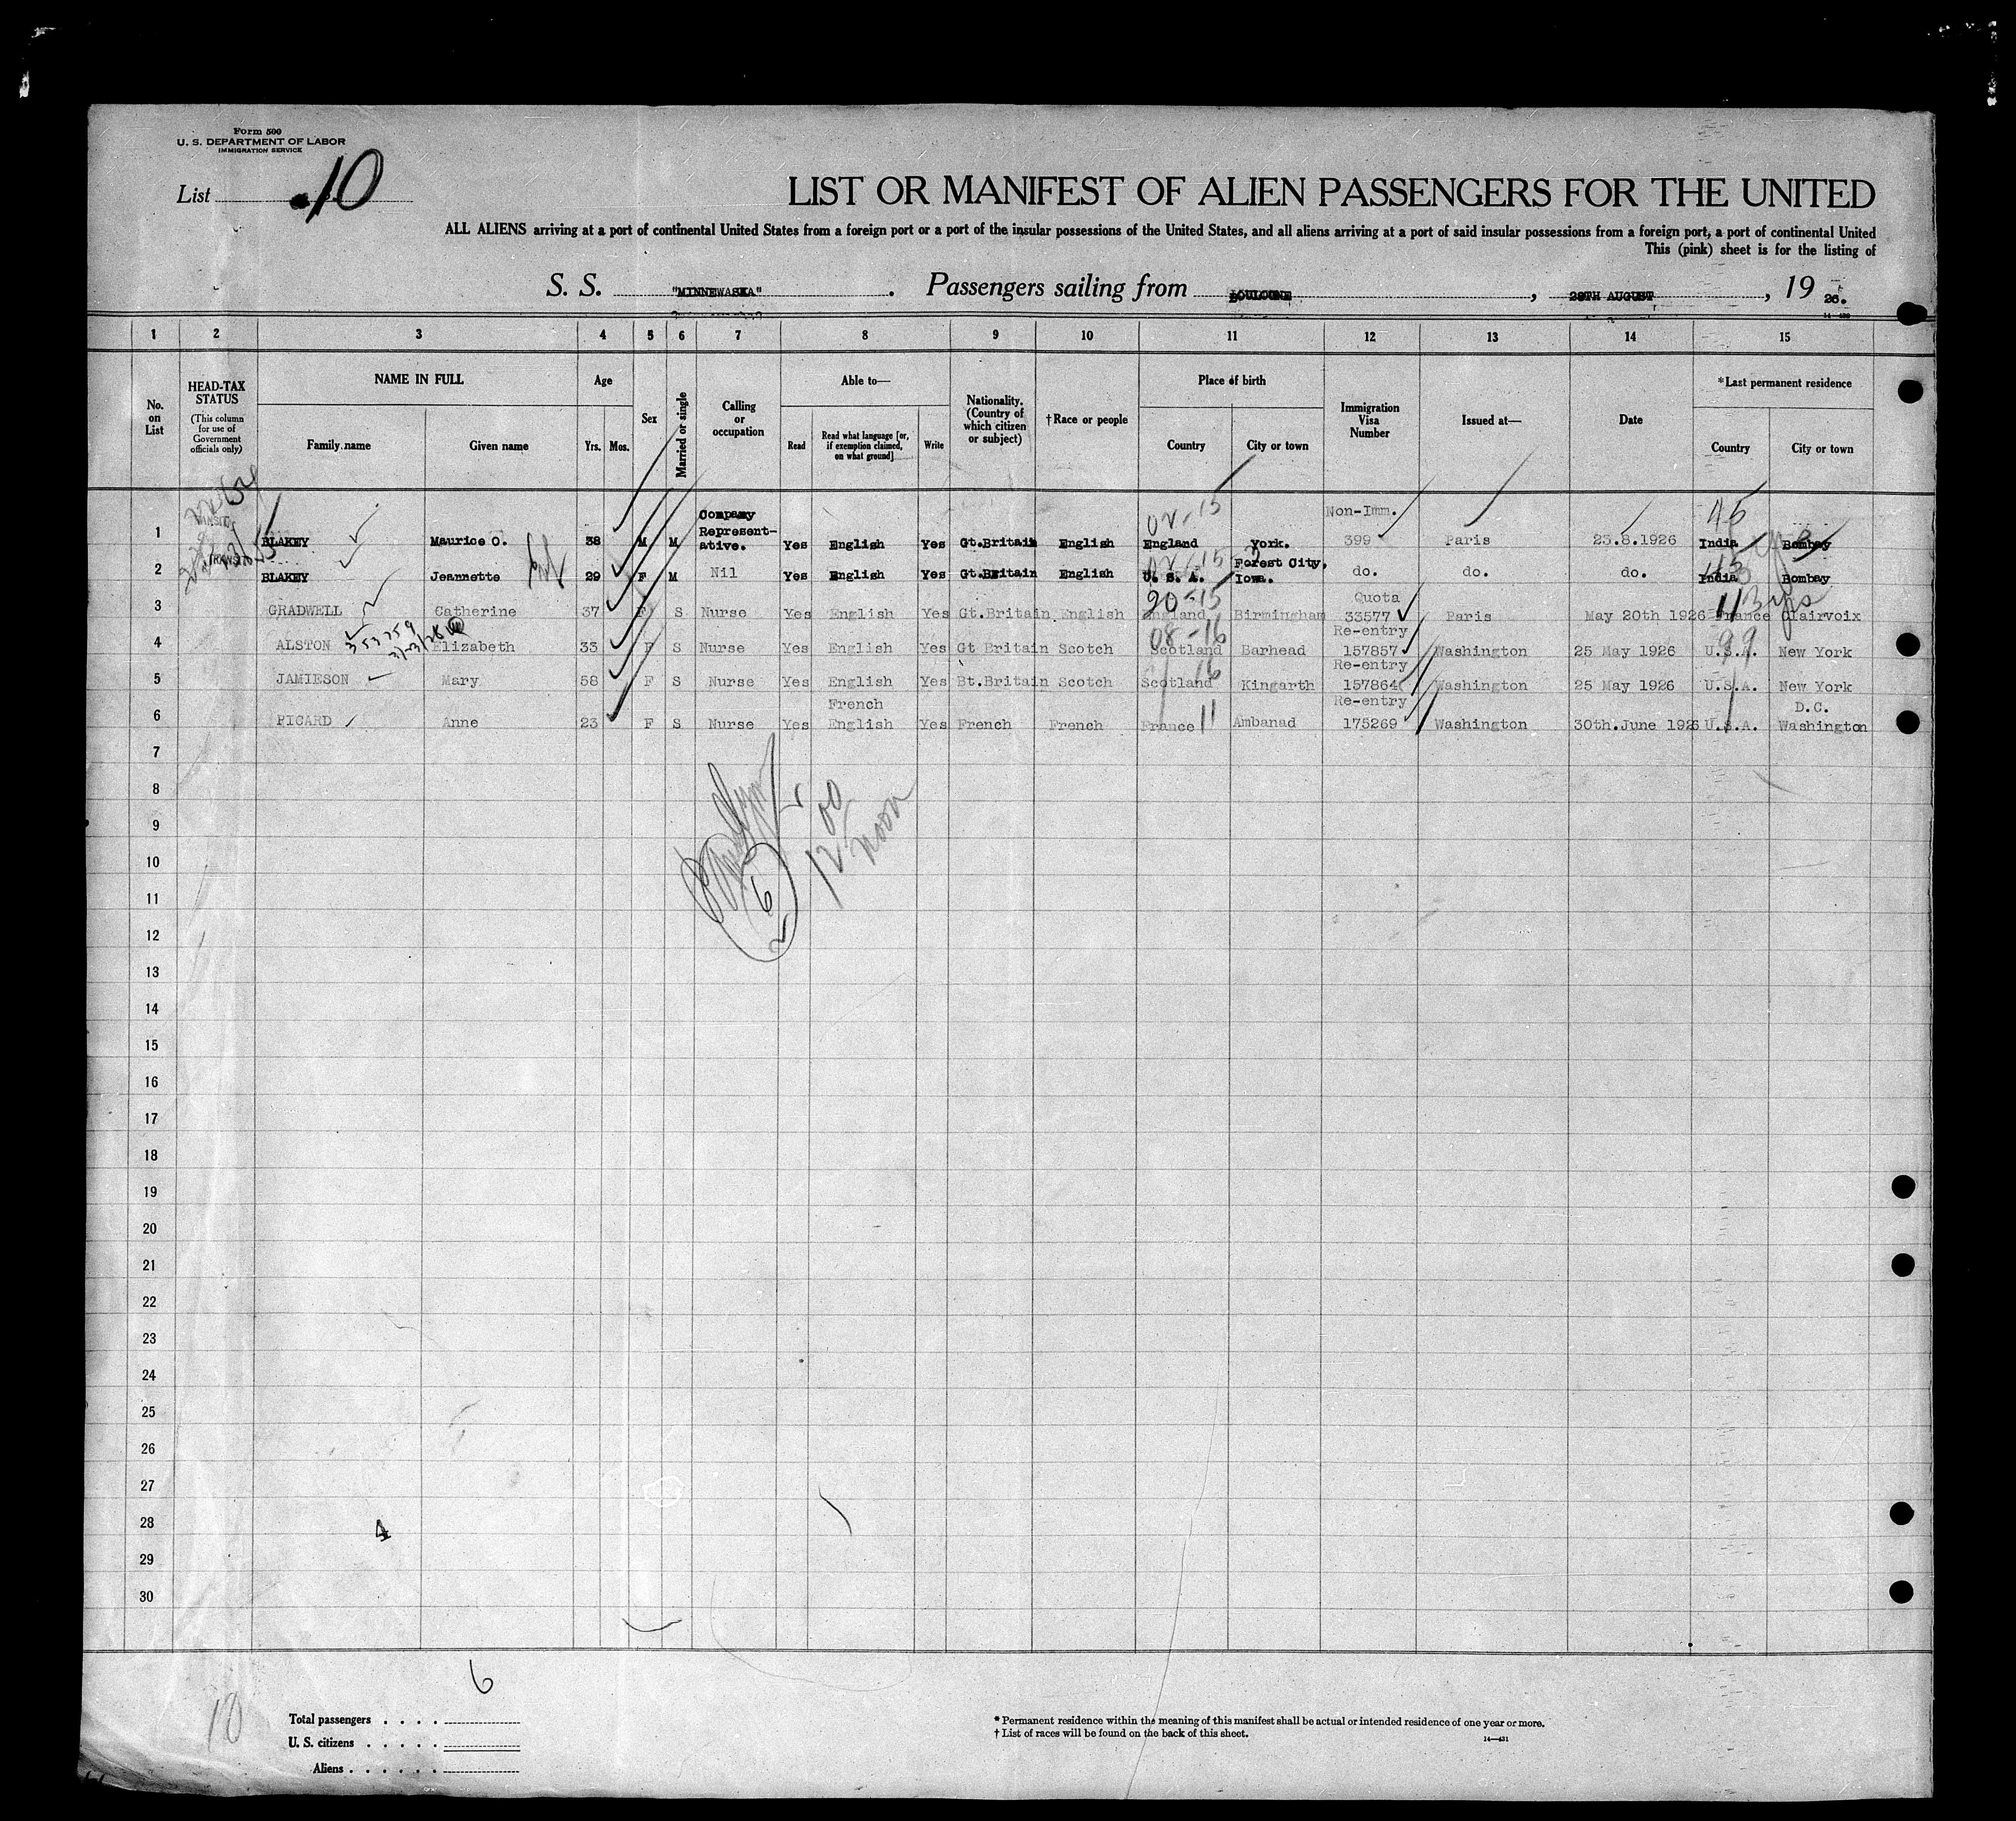 Form 500
U. S. DEPARTMENT OF LABOR
IMMIGRATION SERVICE
List 10
LIST OR MANIFEST OF ALIEN PASSENGERS FOR THE UNITED
ALL ALIENS arriving at a port of continental United States from a foreign port or a port of the insular possessions of the United States, and all aliens arriving at a port of said insular possessions from a foreign port, a port of continental United
This (pink) sheet is for the listing of
S. S. "MINNEWASKA". Passengers sailing from BOULOGNE, 28TH AUGUST, 19 26.
1 2 3 4 5 6 7 8 9 10 11 12 13 14 15
No. on List
HEAD-TAX STATUS (This column for use of Government officials only)
NAME IN FULL
Family name Given name
Age
Yrs. Mos.
Sex
Married or single
Calling or occupation
Able to—
Read
Read what language [or, if exemption claimed, on what ground]
Write
Nationality. (Country of which citizen or subject)
†Race or people
Place of birth
Country City or town
Immigration Visa Number
Issued at—
Date
*Last permanent residence
Country City or town
02-15 45
1 BLAKEY Maurice O. 38 M M Company Represent-ative. Yes English Yes Gt.Britain English England York. Non-Imm. 399 Paris 23.8.1926 India Bombay
2 BLAKEY Jeannette 29 F M Nil Yes English Yes Gt.Britain English U. S. A. Forest City, Iowa. do. do. do. India Bombay
20-15 11
3 GRADWELL Catherine 37 F S Nurse Yes English Yes Gt.Britain English England Birmingham Quota 33577 Paris May 20th 1926 France Clairvoix
353759 08-16 99
4 ALSTON Elizabeth 33 F S Nurse Yes English Yes Gt Britain Scotch Scotland Barhead Re-entry 157857 Washington 25 May 1926 U.S.A. New York
16
5 JAMIESON Mary 58 F S Nurse Yes English Yes Bt.Britain Scotch Scotland Kingarth Re-entry 157864 Washington 25 May 1926 U.S.A. New York
6 PICARD Anne 23 F S Nurse Yes French English Yes French French France 11 Ambanad Re-entry 175269 Washington 30th.June 1926 U.S.A. D.C. Washington
7
8
12 00 noon
9
10
6
11
12
13
14
15
16
17
18
19
20
21
22
23
24
25
26
27
28
4
29
30
6
10
Total passengers . . . .
U. S. citizens . . . . .
Aliens . . . . . .
* Permanent residence within the meaning of this manifest shall be actual or intended residence of one year or more.
† List of races will be found on the back of this sheet.
14—431